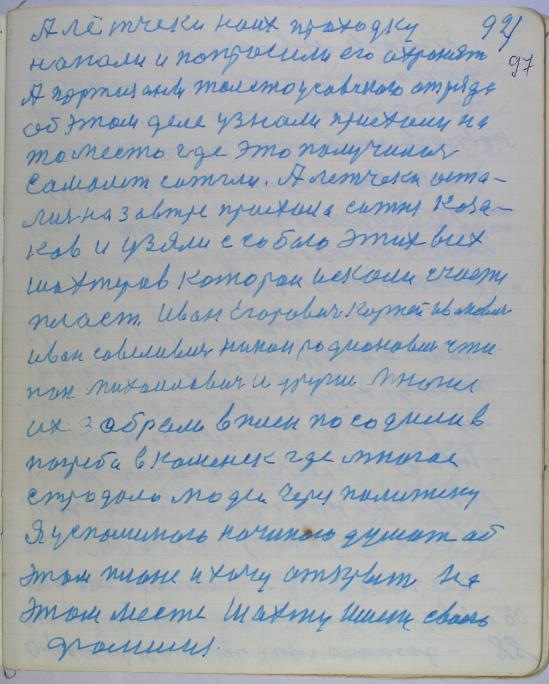 А лётчеки наих проходку 92/
напали и попросили его охронят 97
А портизани толстоусовского отряда
об этом деле узнали приехали на
то место где это получилися
самолет сатгли. А летчеки оста-
лис на завтре приехала сотня Коза-
ков и узяли с собою этих всих
шахтеров котораи искали счасти
пласт. Иван Егорович Корней Иванович
иван савелиевич никон родионович сти
пан михаилович и други многи
их забрали в плен посодили в
погреба в Каменск где многае
стродали люди через политику
Я успоминаю начинаю думат об
этом плане и хочу открыт на
этом месте шахту имею своих